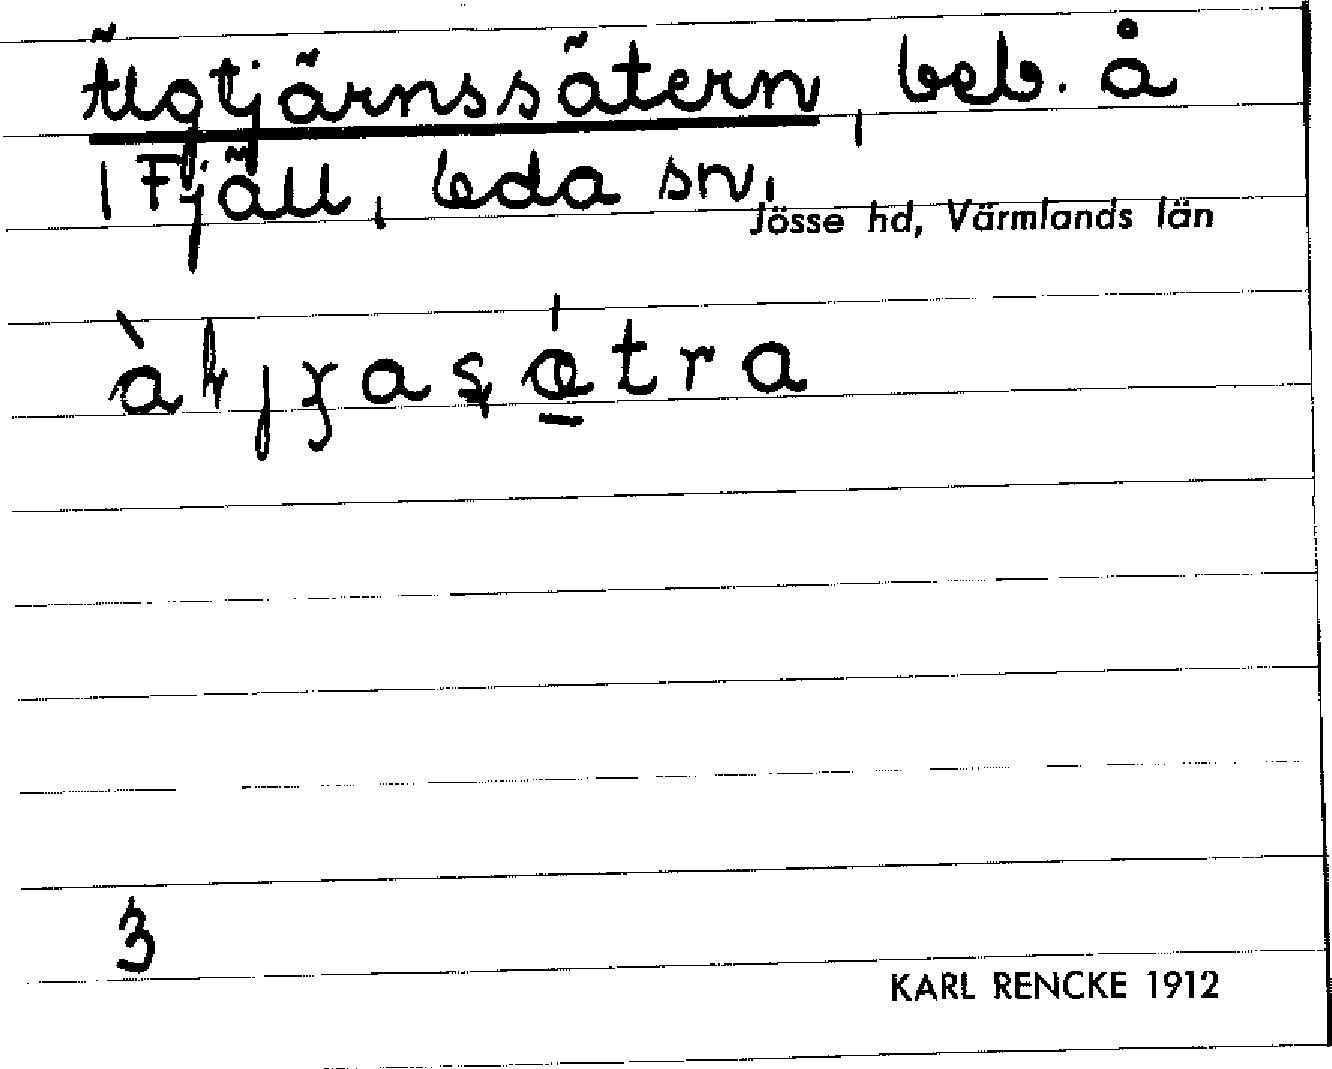 Älgtjärnssätern, beb. å
1 Fjäll, Eda sn,
Jösse hd, Värmlands län
3
KARL RENCKE 1912